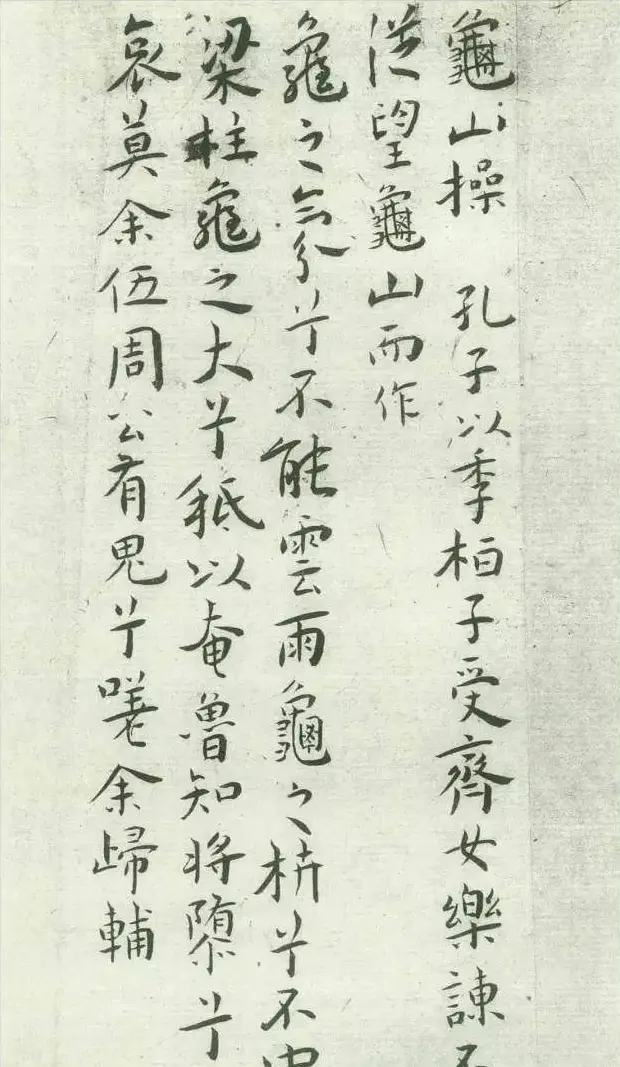 龜山操 孔子以季桓子受齊女樂諫不
從望龜山而作
龜之氛兮不能雲雨龜之枿兮不中
梁柱龜之大兮秪以奄魯知將隳兮
哀莫余伍周公有鬼兮嗟余歸輔